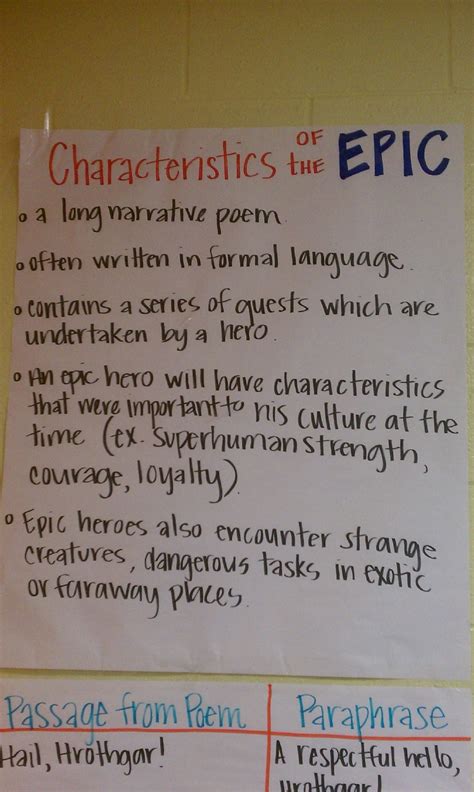 Characteristics OF THE EPIC
• a long narrative poem
• often written in formal language.
• contains a series of quests which are
undertaken by a hero.
• An epic hero will have characteristics
that were important to his culture at the
time (ex. Superhuman strength,
courage, loyalty)
• Epic heroes also encounter strange
creatures, dangerous tasks in exotic
or faraway places.
Passage from Poem
Paraphrase
Hail, Hrothgar!
A respectful hello,
Hrothgar!